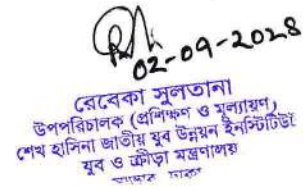 02-09-2024
রেবেকা সুলতানা
উপপরিচালক (প্রশিক্ষণ ও মূল্যায়ণ)
শেখ হাসিনা জাতীয় যুব উন্নয়ন ইনস্টিটিউট
যুব ও ক্রীড়া মন্ত্রণালয়